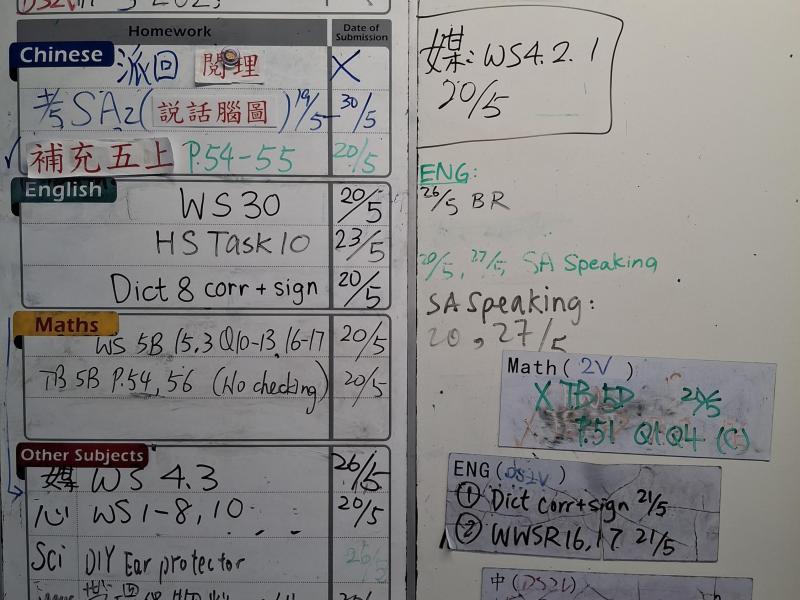 Homework
Date of Submission
Chinese
派回 閱理 X
SA2(說話腦圖) 19/5 30/5
補充五上 P.54-55 20/5
English
WS 30 20/5
HS Task 10 23/5
Dict 8 corr + sign 20/5
Maths
WS 5B 15.3 Q10-13, 16-17 20/5
TB 5B P.54, 56 (No checking) 20/5
Other Subjects
媒 WS 4.3 26/5
心 WS 1-8, 10 20/5
Sci DIY Ear protector 26/5
媒: WS 4.2.1
20/5
ENG:
26/5 BR
20/5, 27/5 SA Speaking
SA Speaking:
20, 27/5
Math ( 2V )
X TB 5D
P.51 Q1 Q4 (C)
ENG (DS2V)
① Dict corr+sign 21/5
② WWSR 16, 17 21/5
中 (DS2V)